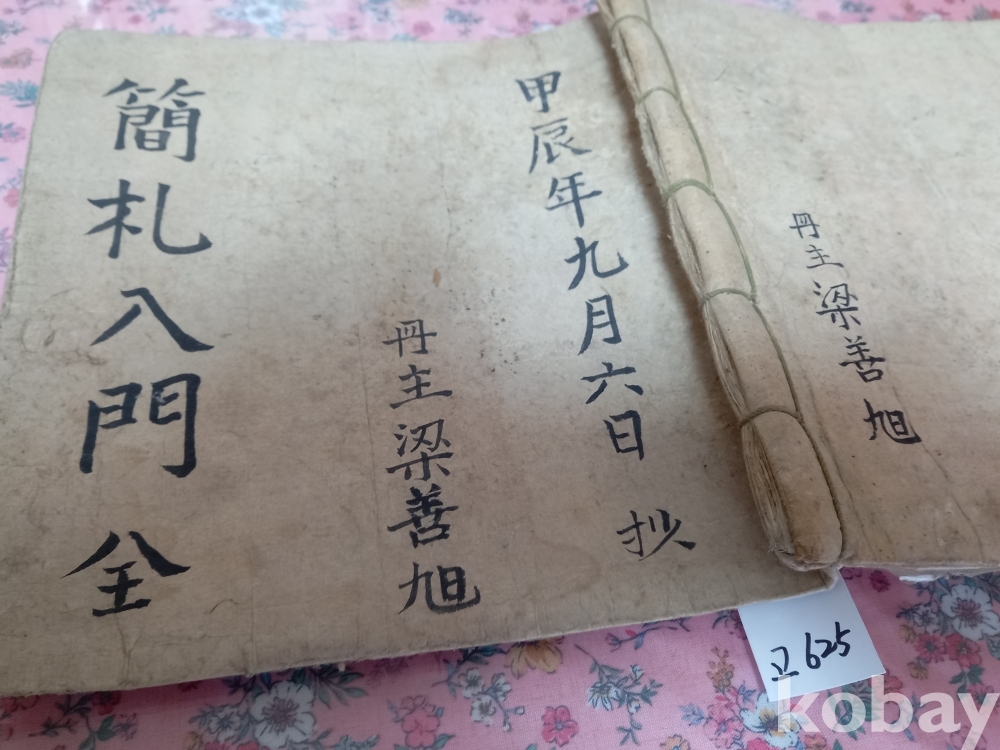 冊主梁善旭
甲辰年九月六日 抄
冊主梁善旭
簡札入門 全
고 625
kobay